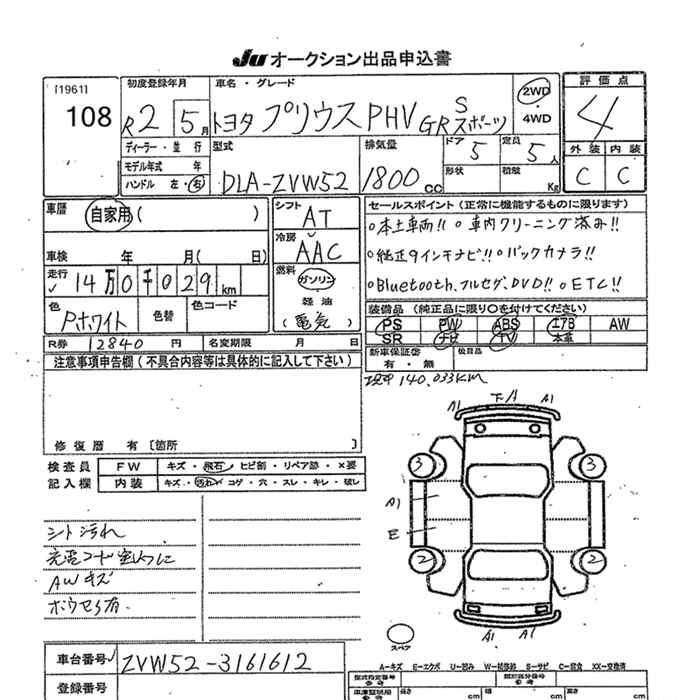 Ju オークション出品申込書
[1961]
108
初度登録年月
R2 5月
車名・グレード
トヨタ プリウスPHV GRスポーツ S
2WD
・
4WD
評価点
4
外装 内装
C C
ディーラー・並行
モデル年式 年
ハンドル 左・右
型式
DLA-ZVW52
排気量
1800cc
ドア
5
定員
5人
形状
積載
Kg
車歴
自家用( )
シフト
AT
セールスポイント (正常に機能するものに限ります)
○本土車両!! ○車内クリーニング済み!!
○純正9インチナビ!! ○バックカメラ!!
○Bluetooth、フルセグ、DVD!! ○ETC!!
車検 年 月( 日)
冷房
AAC
走行
14万0千029km
燃料
ガソリン
軽油
(電気)
色
Pホワイト
色替
色コード
装備品 (純正品に限り○を付けてください)
PS PW ABS エアB AW
SR ナビ TV 本革
R券 12840円
名変期限 月 日
新車保証書
有・無
欠品目
注意事項申告欄 (不具合内容等は具体的に記入して下さい)
140,033KM
修復歴 有 〔箇所
検査員
記入欄
FW キズ・飛石・ヒビ割・リペア跡・×要
内装 キズ・汚れ・コゲ・穴・スレ・キレ・破レ
シート汚れ
AWキズ
A1 下A A1
3 3
A1
E
2 2
A1 A1
スペア
車台番号
ZVW52-3161612
登録番号
A-キズ E-エクボ U-凹み W-補修跡 S-サビ C-腐食 XX-交換済
型式指定番号
参考
類別区分番号
参考
長さ cm
cm
cm